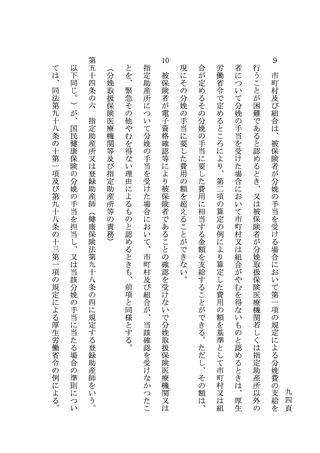 九四頁
９　市町村及び組合は、被保険者が分娩の手当を受ける場合において第一項の規定による分娩費の支給を
行うことが困難であると認めるとき、又は被保険者が分娩取扱保険医療機関若しくは指定助産所以外の
者について分娩の手当を受けた場合において市町村又は組合がやむを得ないものと認めるときは、厚生
労働省令で定めるところにより、第二項の算定の例により算定した費用の額を基準として市町村又は組
合が定めるその分娩の手当に要した費用に相当する金額を支給することができる。ただし、その額は、
現にその分娩の手当に要した費用の額を超えることができない。
10　被保険者が電子資格確認等により被保険者であることの確認を受けないで分娩取扱保険医療機関又は
指定助産所について分娩の手当を受けた場合において、市町村及び組合が、当該確認を受けなかつたこ
とを、緊急その他やむを得ない理由によるものと認めるときも、前項と同様とする。
（分娩取扱保険医療機関等及び指定助産所等の責務）
第五十四条の六　指定助産所又は登録助産師（健康保険法第九十八条の四に規定する登録助産師をいう。
以下同じ。）が、国民健康保険の分娩の手当を担当し、又は当該分娩の手当に当たる場合の準則につい
ては、同法第九十八条の十第一項及び第九十八条の十三第一項の規定による厚生労働省令の例による。